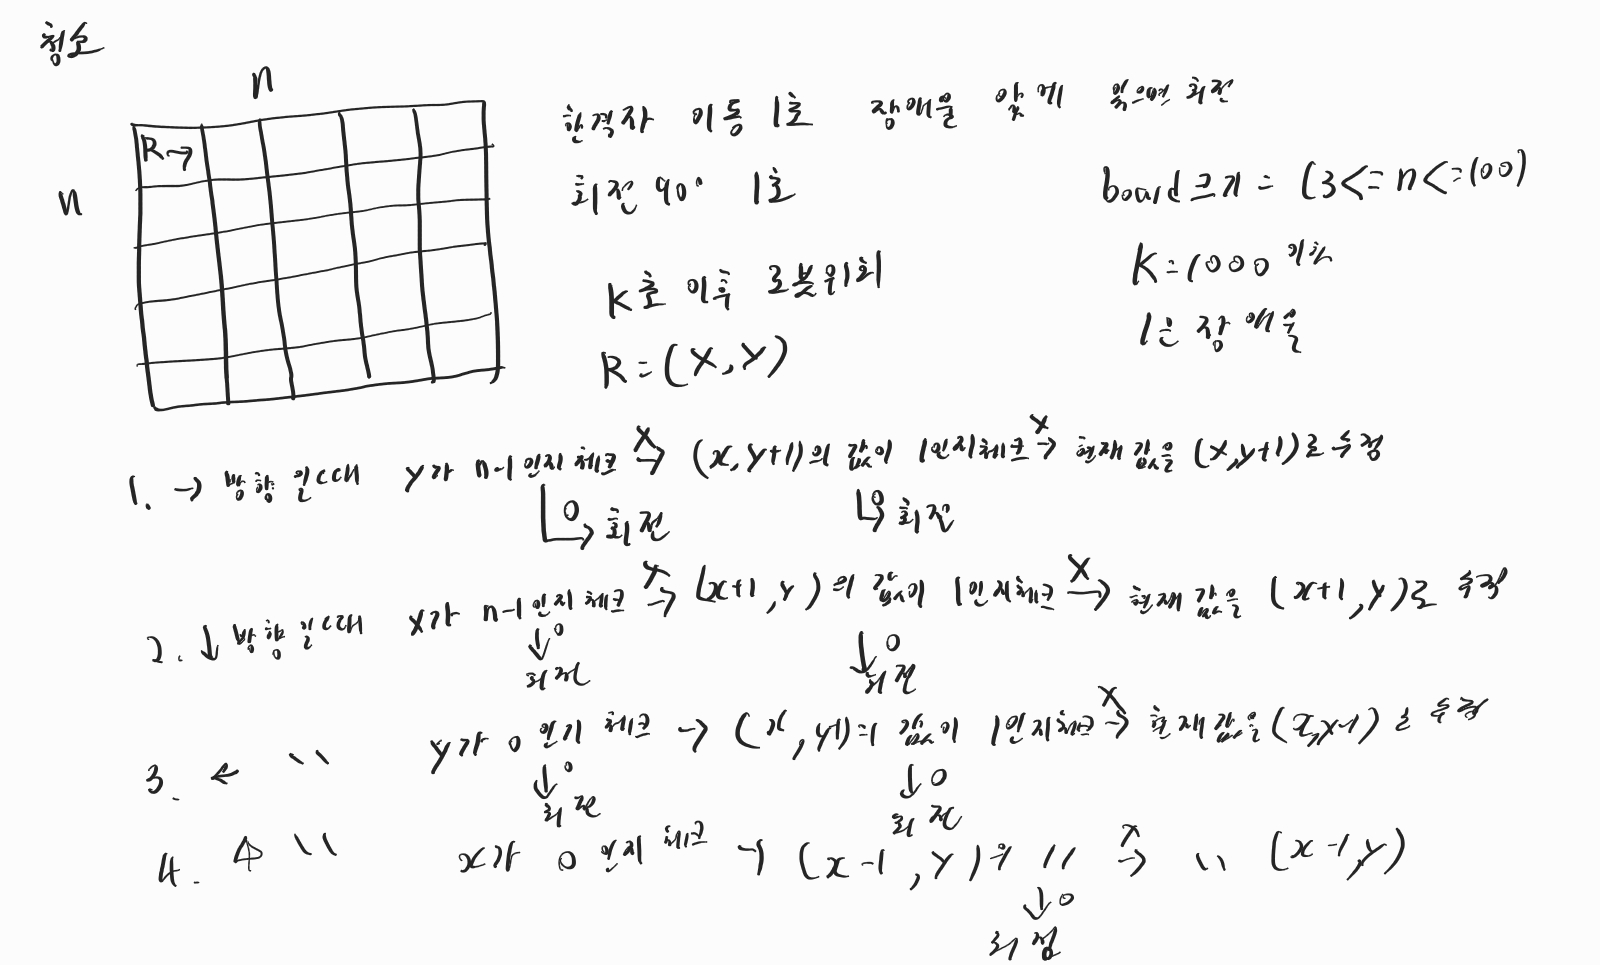 청소
n
n
R→
한격자 이동 1초 장애물 앞에 있으면 회전
회전 90° 1초
board크기 = (3<= n<=100)
K초 이후 로봇위치
K=1000 이하
R = (X,Y)
1은 장애물
1. → 방향일때 y가 n-1인지 체크 X→ (x, y+1)의 값이 1인지체크 X→ 현재 값을 (x,y+1)로 수정
O 회전 O 회전
2. ↓ 방향일때 x가 n-1인지 체크 X→ (x+1, y)의 값이 1인지체크 X→ 현재 값을 (x+1, y)로 수정
↓O ↓O
회전 회전
3. ← 〃 y가 0 인지 체크 → 값이 1인지체크 X→ 현재 값을 로 수정
↓O ↓O
회전 회전
4. ↑ 〃 x가 0 인지 체크 → (x-1, y)의 〃 X→ 〃 (x-1, y)
↓O
회전